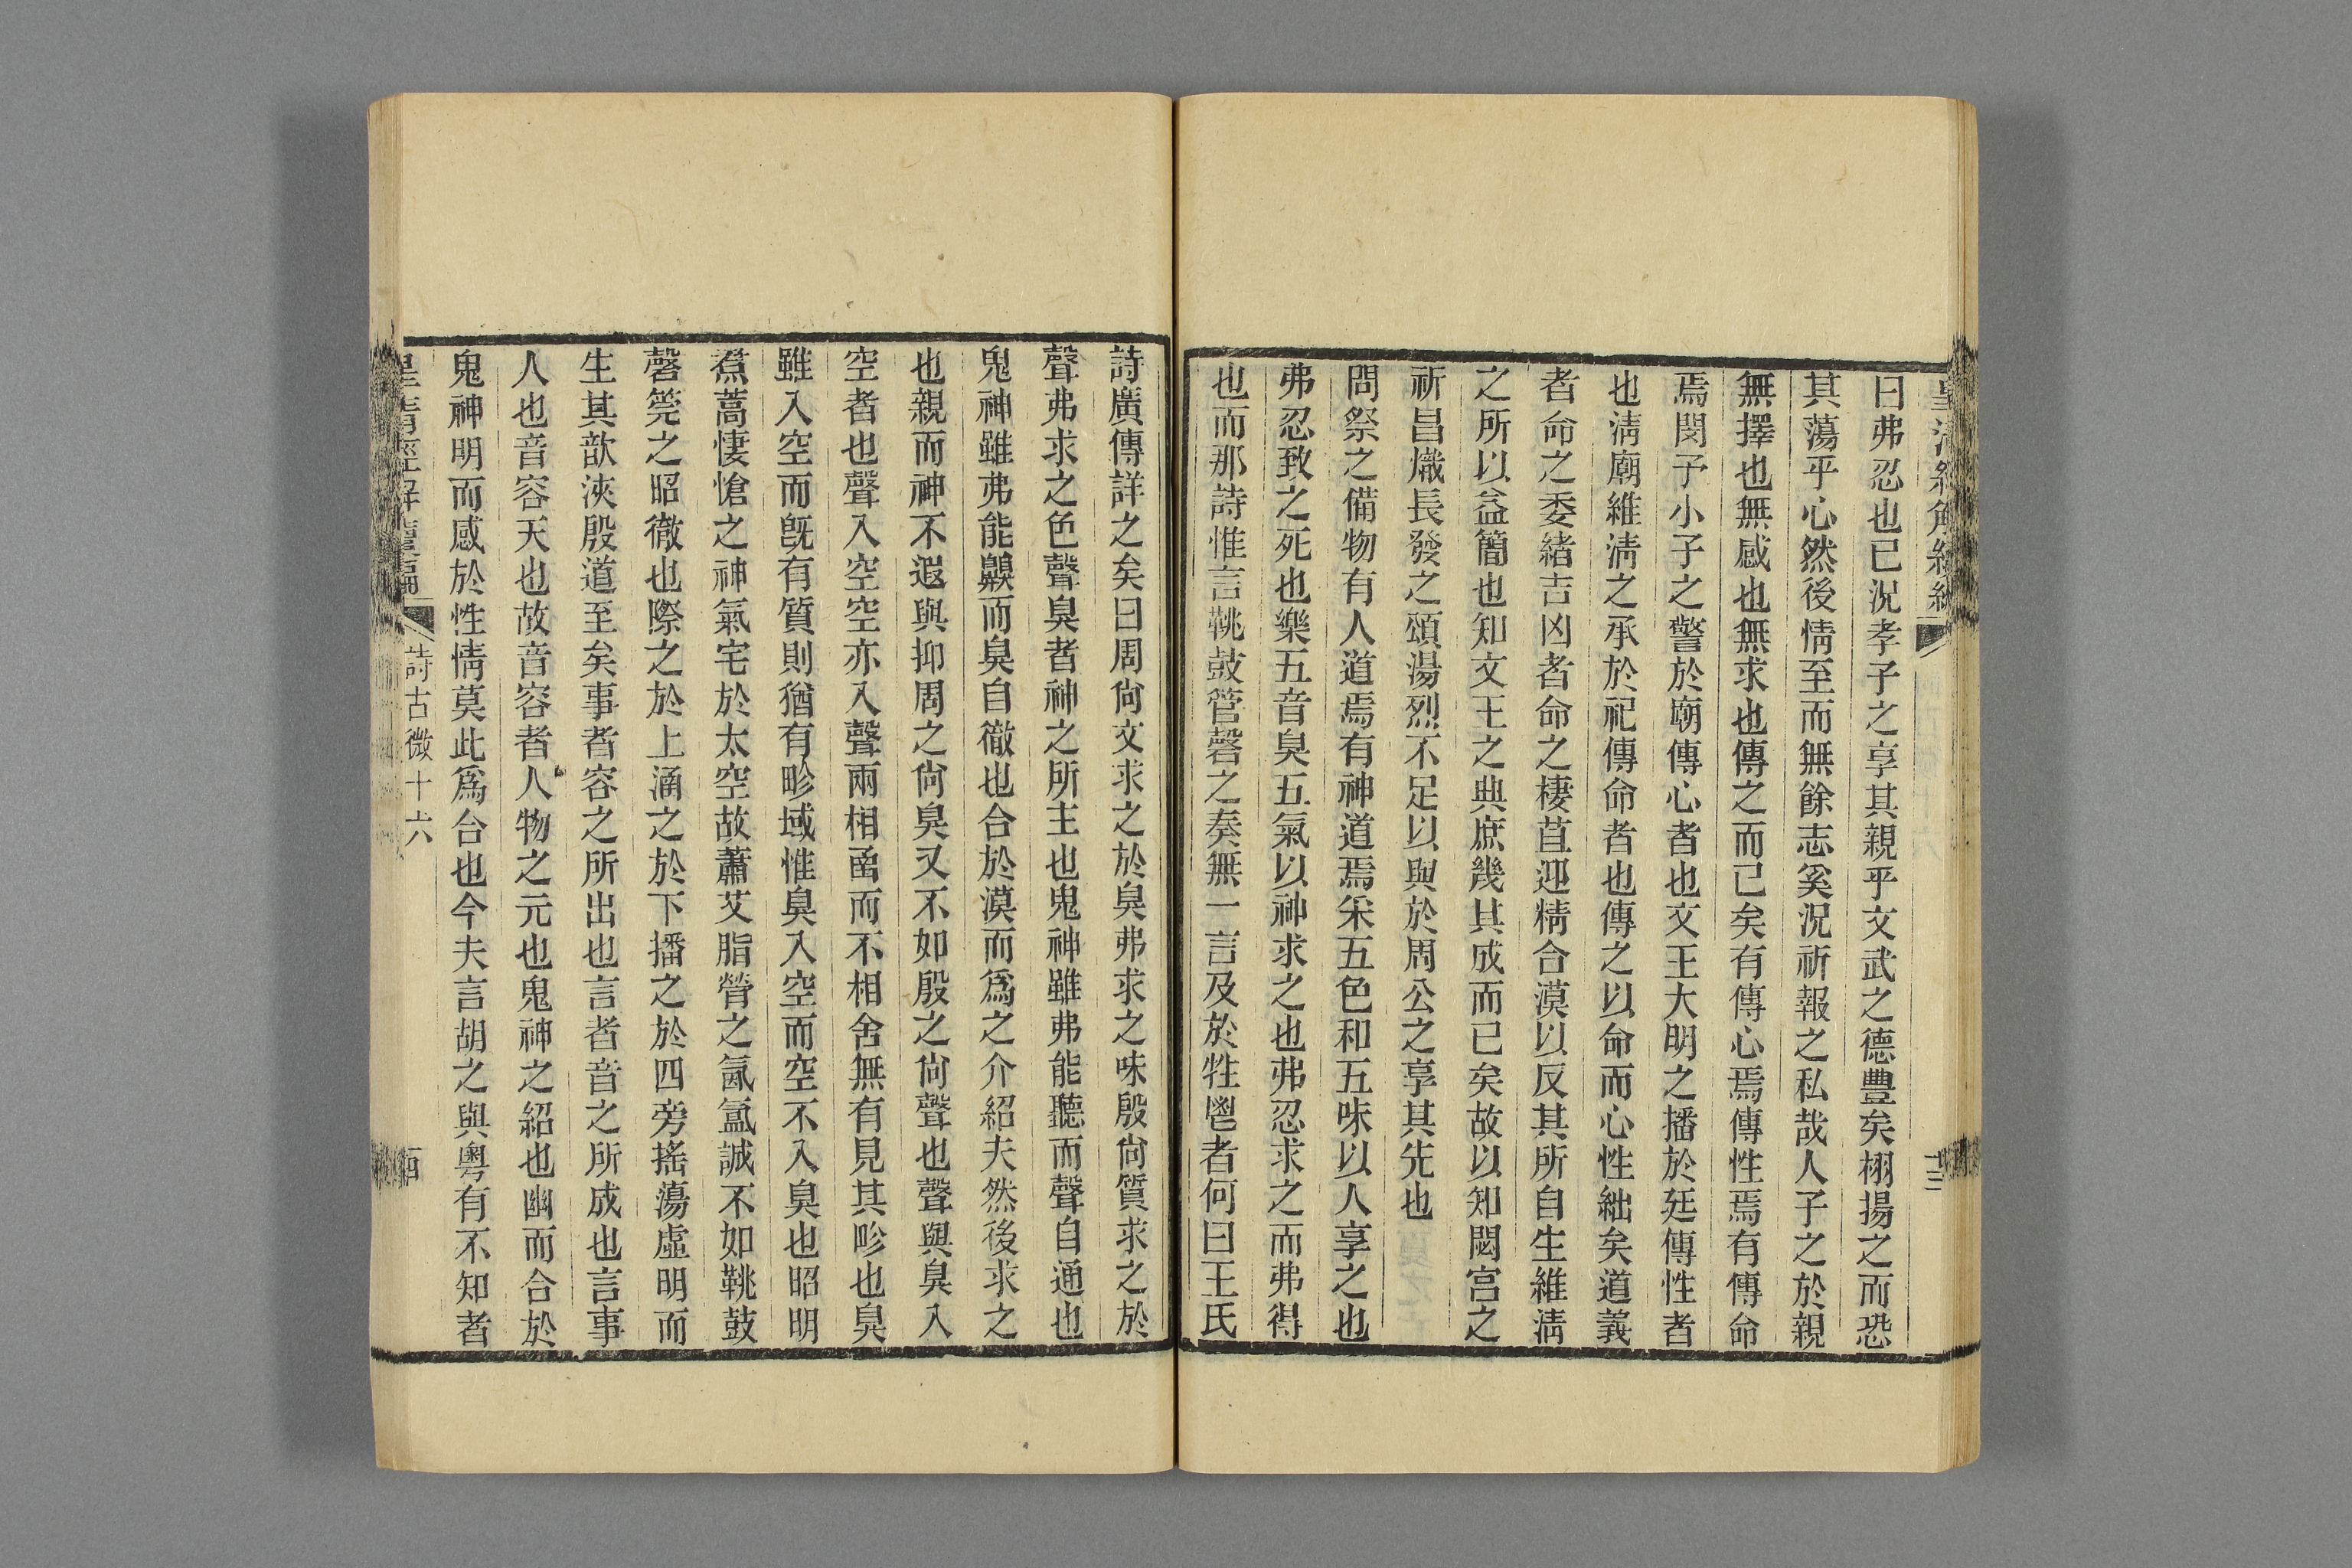 皇清經解續編
十三
曰弗忍也已況孝子之享其親乎文武之德豐矣栩揚之而恐
其蕩乎心然後情至而無餘志奚況祈報之私哉人子之於親
無擇也無感也無求也傳之而已矣有傳心焉傳性焉有傳命
焉閔予小子之警於廟傳心者也文王大明之播於廷傳性者
也淸廟維淸之承於祀傳命者也傳之以命而心性絀矣道義
者命之委緒吉凶者命之棲苴迎精合漠以反其所自生維淸
之所以益簡也知文王之典庶幾其成而已矣故以知閟宮之
祈昌熾長發之頌湯烈不足以與於周公之享其先也
問祭之備物有人道焉有神道焉采五色和五味以人享之也
弗忍致之死也樂五音臭五氣以神求之也弗忍求之而弗得
也而那詩惟言鞉鼓管磬之奏無一言及於牲鬯者何曰王氏
詩廣傳詳之矣曰周尙文求之於臭弗求之味殷尙質求之於
聲弗求之色聲臭者神之所主也鬼神雖弗能聽而聲自通也
鬼神雖弗能齅而臭自徹也合於漠而爲之介紹夫然後求之
也親而神不遐與抑周之尙臭又不如殷之尙聲也聲與臭入
空者也聲入空空亦入聲兩相函而不相舍無有見其畛也臭
雖入空而旣有質則猶有畛域惟臭入空而空不入臭也昭明
焄蒿悽愴之神氣宅於太空故蕭艾脂膋之氤氳誠不如鞉鼓
磬筦之昭徹也際之於上涌之於下播之於四旁搖蕩虛明而
生其歆浹殷道至矣事者容之所出也言者音之所成也言事
人也音容天也故音容者人物之元也鬼神之紹也幽而合於
鬼神明而感於性情莫此爲合也今夫言胡之與粵有不知者
皇淸經解續編
詩古微十六